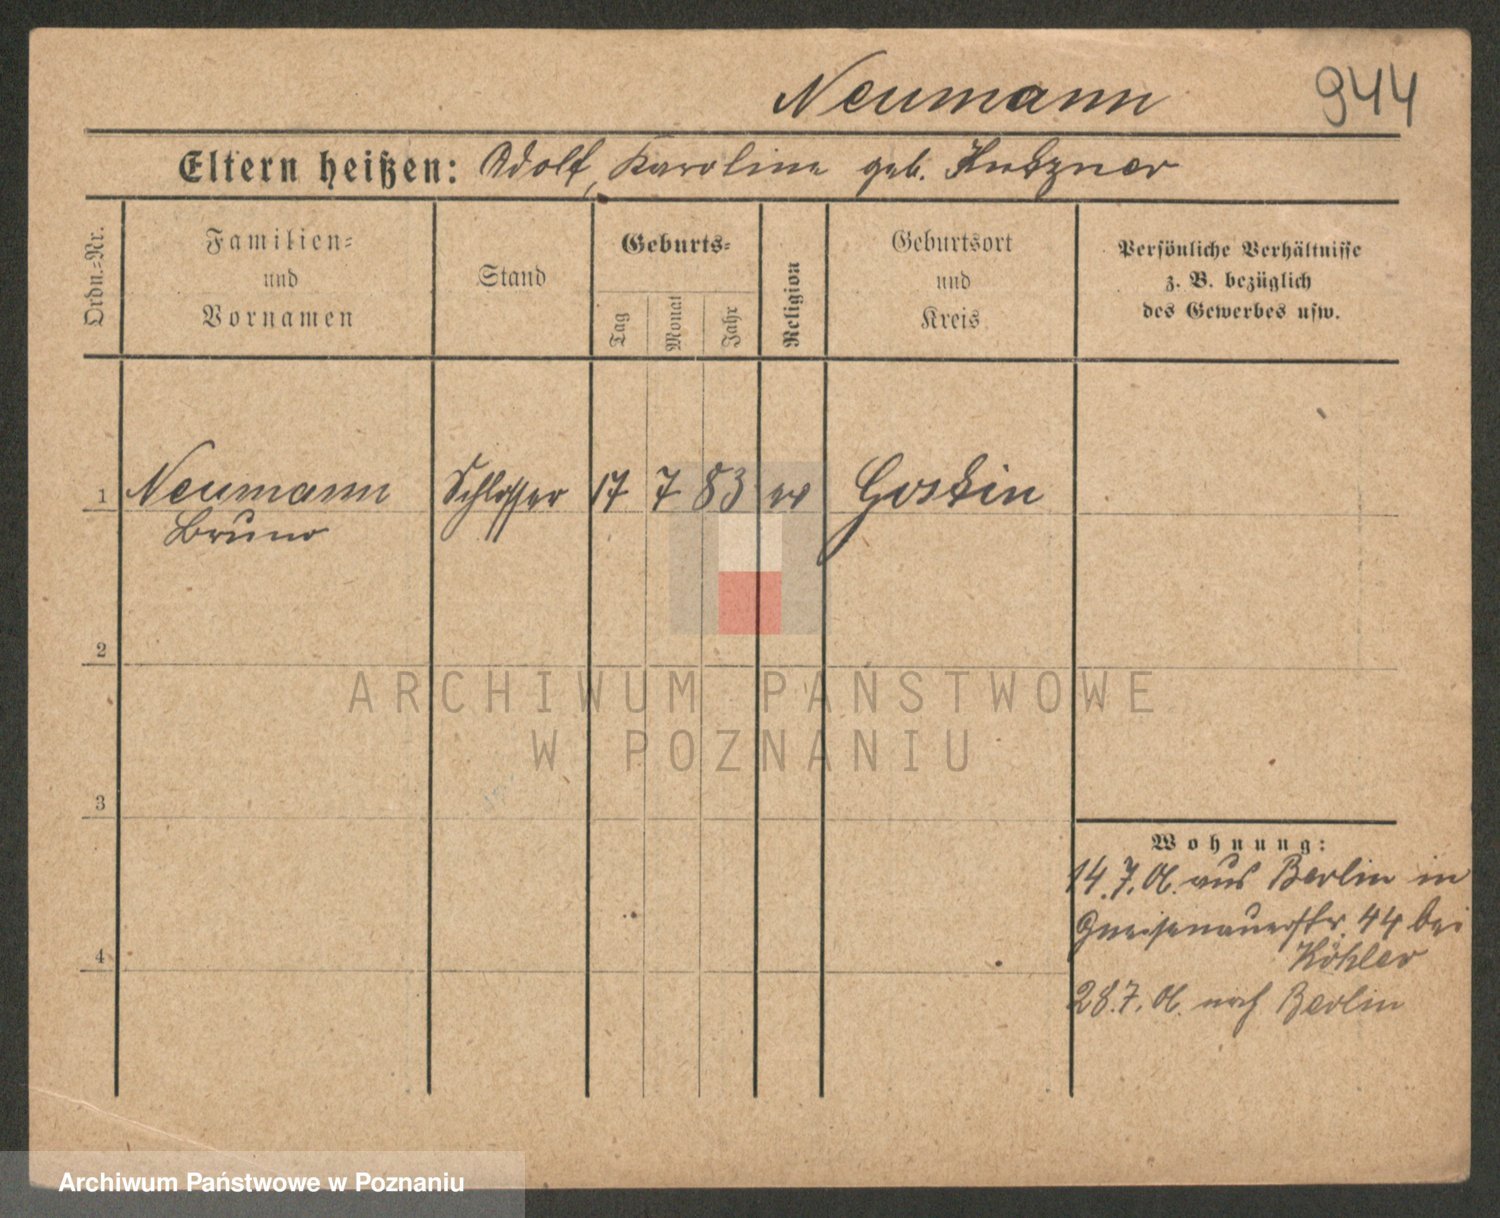 Neumann 944
Eltern heißen: Adolf, Karoline geb.
Ordn.-Nr.
Familien-
und
Vornamen
Stand
Geburts-
Tag
Monat
Jahr
Religion
Geburtsort
und
Kreis
Persönliche Verhältnisse
z. B. bezüglich
des Gewerbes usw.
1 Neumann Schlosser 17 7 83 ev
Bruno
2
3
4
Wohnung:
14.7.06. aus Berlin in
Gneisenauerstr. 44 bei
Köhler
28.7.06. nach Berlin
ARCHIWUM PAŃSTWOWE
W POZNANIU
Archiwum Państwowe w Poznaniu